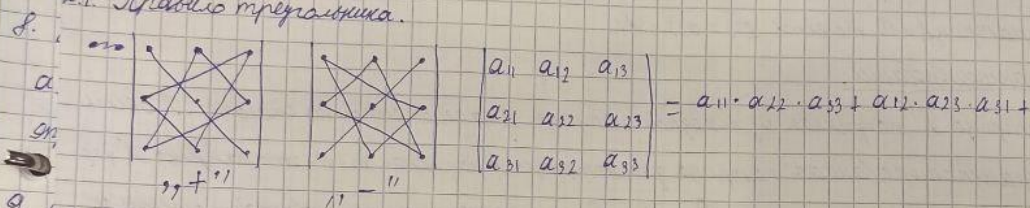 Правило треугольника.
8.
a
a₁₁ a₁₂ a₁₃
a₂₁ a₂₂ a₂₃
a₃₁ a₃₂ a₃₃
= a₁₁ · a₂₂ · a₃₃ + a₁₂ · a₂₃ · a₃₁ +
„+" „−"